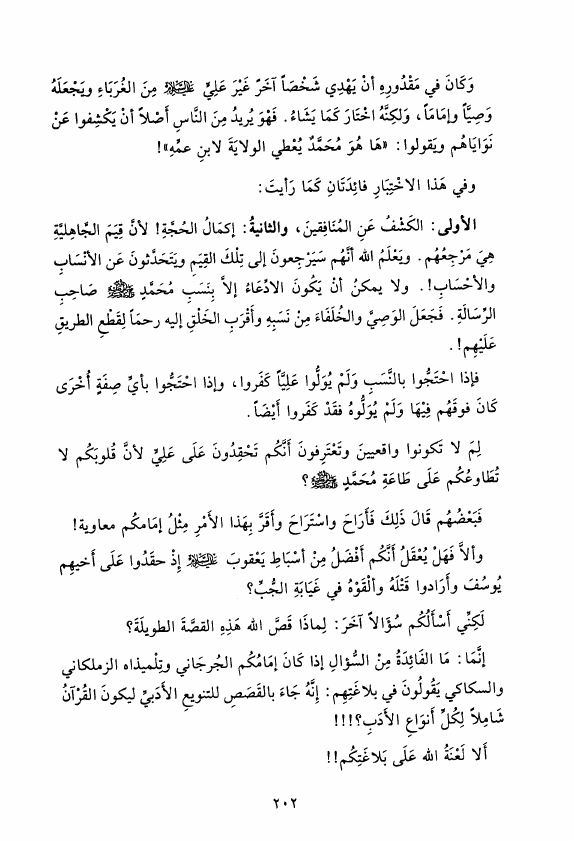 وَكَانَ في مَقْدُورِهِ أنْ يَهْدِي شَخْصَاً آخَرَ غَيْرَ عَلِيٍّ عليه السلام مِنَ الغُرَبَاءِ ويَجْعَلَهُ
وَصِيَّاً وإمَامَاً، وَلكِنَّهُ اخْتَارَ كَمَا يَشَاءُ. فَهْوَ يُرِيدُ مِنَ النَّاسِ أَصْلاً أنْ يَكْشِفُوا عَنْ
نَوَايَاهُم ويَقولوا: «هَا هُوَ مُحَمَّدٌ يُعْطي الولايَةَ لابنِ عمِّهِ»!
وفي هَذا الاخْتِبَارِ فائِدَتَانِ كَمَا رَأيتَ:
الأولى: الكَشْفُ عَنِ المُنَافِقينَ، والثانيةُ: إكمَالُ الحُجَّةِ! لأنَّ قِيَمَ الجَاهليَّةِ
هِيَ مَرْجِعُهُم. ويَعْلَمُ الله أنَّهُم سَيَرْجِعونَ إلى تِلْكَ القِيَمِ ويَتَحَدَّثونَ عَن الأنْسَابِ
والأحْسَابِ!. ولا يمكنُ أنْ يَكُونَ الادِّعَاءُ إلاَّ بِنَسَبِ مُحَمَّدٍ ﷺ صَاحِبِ
الرِّسَالَةِ. فَجَعَلَ الوَصِيَّ والخُلَفَاءَ مِنْ نَسَبِهِ وأقْرَبِ الخَلْقِ إليه رحمَاً لِقَطْعِ الطريقِ
عَلَيْهِم!.
فإذا احْتَجُّوا بالنَّسَبِ وَلَمْ يُوَلُّوا عَلِيَّاً كَفَروا، وإذا احْتَجُّوا بأيِّ صِفَةٍ أُخْرَى
كَانَ فوقَهُم فِيْهَا وَلَمْ يُوَلُّوهُ فقَدْ كَفَروا أيْضَاً.
لِمَ لا تَكونوا واقعيينَ وتَعْتَرِفونَ أنَّكُم تَحْقِدُونَ عَلَى عَلِيٍّ لأنَّ قُلوبَكُم لا
تُطَاوِعُكُم عَلَى طَاعَةِ مُحَمَّدٍ ﷺ؟
فَبَعْضُهُم قَالَ ذَلِكَ فَأَرَاحَ واسْتَرَاحَ وأقَرَّ بِهَذا الأمْرِ مِثْلُ إمَامكُم معاوية!
وألاَّ فَهَلْ يُعْقَلُ أنَّكُم أفْضَلُ مِنْ أسْبَاطِ يَعْقوبَ عليه السلام إذْ حقَدُوا عَلَى أَخيهِم
يُوسُفَ وأرَادوا قَتْلَهُ وألْقَوْهُ في غَيَابَةِ الجُبِّ؟
لَكِنِّي أَسْأَلُكُم سُؤَالاً آخَرَ: لِماذَا قَصَّ الله هَذِهِ القصَّةَ الطويلَةَ؟
إنَّمَا: مَا الفَائِدَةُ مِنَ السُّؤالِ إذا كَانَ إمَامُكُم الجُرجَاني وتِلْميذاه الزملكاني
والسكاكي يَقُولُونَ في بلاغَتِهِم: إنَّهُ جَاءَ بالقَصَصِ للتنويعِ الأدَبيِّ ليكونَ القُرْآنُ
شَامِلاً لِكُلِّ أنوَاعِ الأدَبِ؟!!!
أَلا لَعْنَةُ الله عَلَى بَلاغَتِكُم!!
٢٠٢